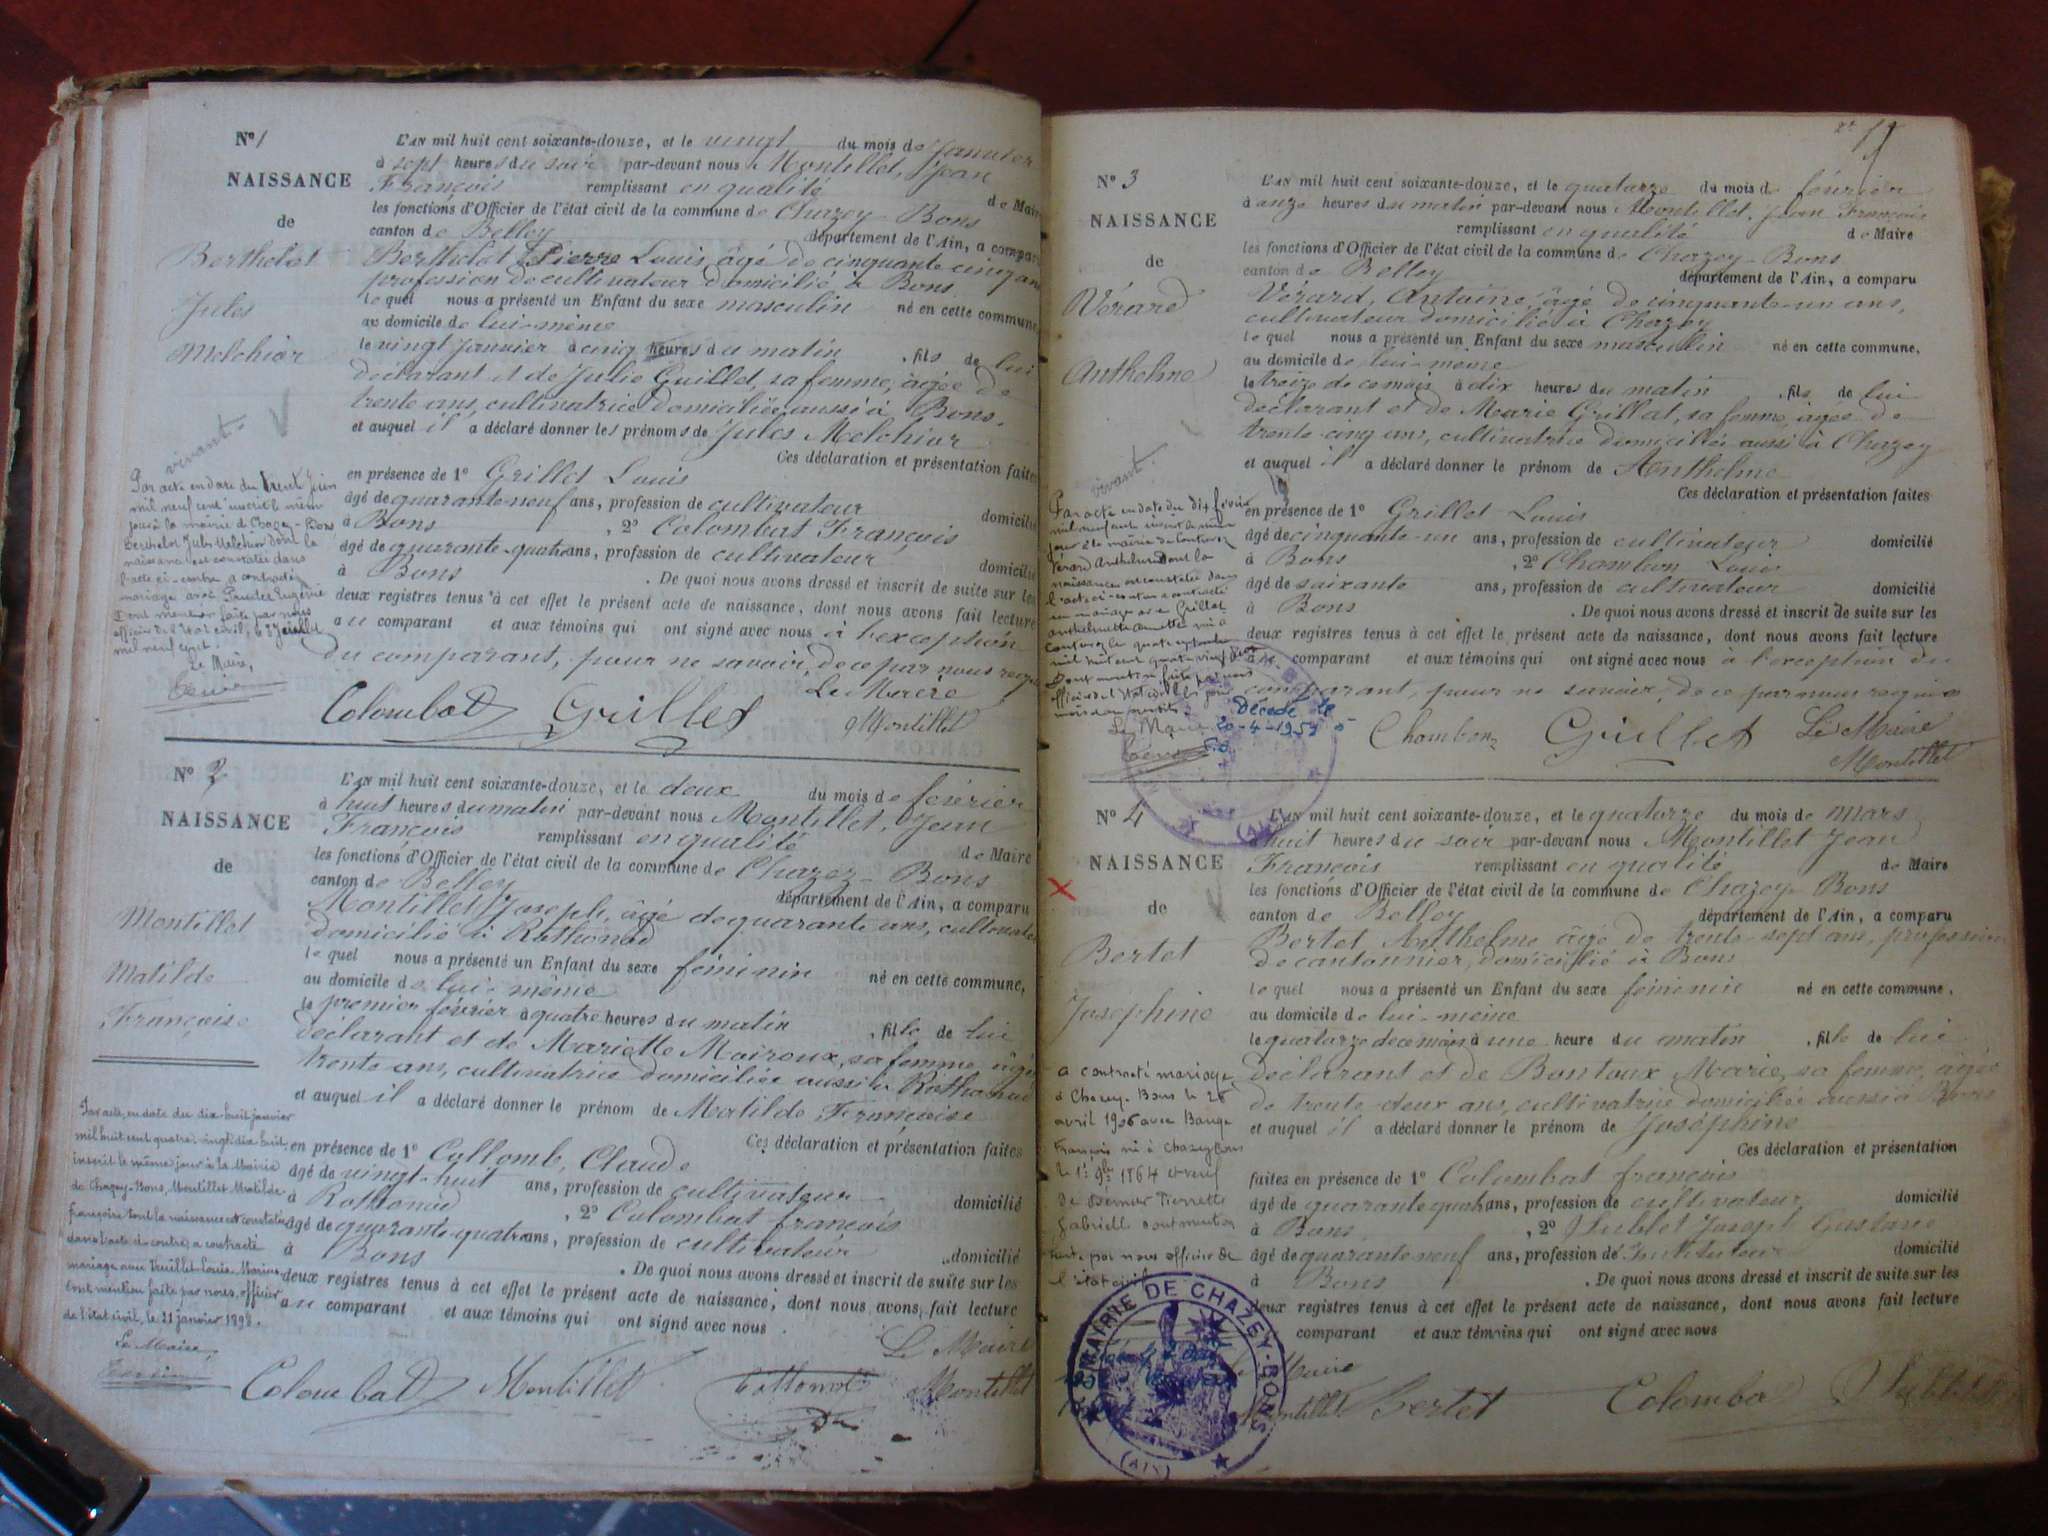 N° 1
NAISSANCE
de
Berthelot
Jules
Melchior
vivant.
L'AN mil huit cent soixante-douze, et le vingt du mois de janvier
à sept heures du soir par-devant nous Montillet, Jean
François remplissant en qualité de Maire
les fonctions d'Officier de l'état civil de la commune de Chazey-Bons
canton de Belley département de l'Ain, a comparu
Berthelot Pierre Louis, âgé de cinquante cinq ans
profession de cultivateur domicilié à Bons
lequel nous a présenté un Enfant du sexe masculin né en cette commune,
au domicile de lui-même
le vingt janvier à cinq heures du matin , fils de lui
déclarant et de Julie Guillet, sa femme, âgée de
trente ans, cultivatrice domiciliée aussi à Bons.
et auquel il a déclaré donner les prénoms de Jules Melchior
Ces déclaration et présentation faites
en présence de 1° Grillet Louis
âgé de quarante-neuf ans, profession de cultivateur domicilié
à Bons , 2° Colombat François
âgé de quarante-quatre ans, profession de cultivateur domicilié
à Bons . De quoi nous avons dressé et inscrit de suite sur les
deux registres tenus à cet effet le présent acte de naissance, dont nous avons fait lecture
au comparant et aux témoins qui ont signé avec nous à l'exception
du comparant, pour ne savoir, de ce par nous requis
Par acte en date du trente Juin
mil neuf cent inscrit le même
jour à la mairie de Chazey-Bons
Berthelot Jules Melchior dont la
naissance est constatée dans
l'acte ci-contre a contracté
mariage avec Eugénie
Dont mention faite par nous
officier de l'état civil, le 2 Juillet
mil neuf cent.
Le Maire,
Colombat Grillet Le Maire
Montillet
N° 2
NAISSANCE
de
Montillet
Matilde
Françoise
L'AN mil huit cent soixante-douze, et le deux du mois de février
à huit heures du matin par-devant nous Montillet, Jean
François remplissant en qualité de Maire
les fonctions d'Officier de l'état civil de la commune de Chazey-Bons
canton de Belley département de l'Ain, a comparu
Montillet Joseph, âgé de quarante ans, cultivateur
domicilié à Rothonod
lequel nous a présenté un Enfant du sexe féminin né en cette commune,
au domicile de lui-même
le premier février à quatre heures du matin , fille de lui
déclarant et de Mariette Moiroux, sa femme âgée
trente ans, cultivatrice domiciliée aussi à Rothonod
et auquel il a déclaré donner le prénom de Matilde Françoise
Ces déclaration et présentation faites
en présence de 1° Collomb, Claude
âgé de vingt-huit ans, profession de cultivateur domicilié
à Rothonod , 2° Colombat françois
âgé de quarante-quatre ans, profession de cultivateur domicilié
à Bons . De quoi nous avons dressé et inscrit de suite sur les
deux registres tenus à cet effet le présent acte de naissance, dont nous avons fait lecture
au comparant et aux témoins qui ont signé avec nous .
Par acte en date du dix-huit janvier
mil huit cent quatre-vingt-dix huit
inscrit le même jour à la Mairie
de Chazey-Bons, Montillet Matilde
françoise dont la naissance est constatée
dans l'acte ci-contre, a contracté
mariage avec Louis Marius
Dont mention faite par nous, officier
de l'état civil, le 21 janvier 1898.
Le Maire,
Le Maire
Colombat Montillet Collomb Montillet
N° 3
NAISSANCE
de
Vérard
Anthelme
vivant.
L'AN mil huit cent soixante-douze, et le quatorze du mois de février
à onze heures du matin par-devant nous Montillet, Jean François
remplissant en qualité de Maire
les fonctions d'Officier de l'état civil de la commune de Chazey-Bons
canton de Belley département de l'Ain, a comparu
Vérard, Antoine, âgé de cinquante-un ans,
cultivateur domicilié à Chazey
lequel nous a présenté un Enfant du sexe masculin né en cette commune,
au domicile de lui-même
le treize de ce mois à dix heures du matin , fils de lui
déclarant et de Marie Grillat, sa femme, âgée de
trente cinq ans, cultivatrice domiciliée aussi à Chazey
et auquel il a déclaré donner le prénom de Anthelme
Ces déclaration et présentation faites
en présence de 1° Grillet Louis
âgé de cinquante-un ans, profession de cultivateur domicilié
à Bons , 2° Chambon Louis
âgé de soixante ans, profession de cultivateur domicilié
à Bons . De quoi nous avons dressé et inscrit de suite sur les
deux registres tenus à cet effet le présent acte de naissance, dont nous avons fait lecture
au comparant et aux témoins qui ont signé avec nous à l'exception du
comparant, pour ne savoir, de ce par nous requis
Par acte en date du dix février
mil neuf cent inscrit le même
jour à la mairie de
Vérard Anthelme dont la
naissance est constatée dans
l'acte ci-contre a contracté
mariage avec Grillet
née à
le quatre septembre
mil huit cent quatre vingt
Dont mention faite par nous
officier de l'état civil les jour
mois et an susdits.
Le Maire
Décédé le
20-4-1957
Chambon Grillet Le Maire
Montillet
N° 4
NAISSANCE
de
Bertet
Joséphine
L'AN mil huit cent soixante-douze, et le quatorze du mois de mars
à huit heures du soir par-devant nous Montillet Jean
François remplissant en qualité de Maire
les fonctions d'Officier de l'état civil de la commune de Chazey-Bons
canton de Belley département de l'Ain, a comparu
Bertet Anthelme âgé de trente-sept ans, profession
de cantonnier, domicilié à Bons
lequel nous a présenté un Enfant du sexe féminin né en cette commune,
au domicile de lui-même
le quatorze de ce mois à une heure du matin , fille de lui
déclarant et de Bontoux Marie, sa femme, âgée
de trente-deux ans, cultivatrice domiciliée aussi à Bons
et auquel il a déclaré donner le prénom de Joséphine
Ces déclaration et présentation
faites en présence de 1° Colombat françois
âgé de quarante quatre ans, profession de cultivateur domicilié
à Bons , 2° Joseph Gustave
âgé de quarante neuf ans, profession de Instituteur domicilié
à Bons . De quoi nous avons dressé et inscrit de suite sur les
deux registres tenus à cet effet le présent acte de naissance, dont nous avons fait lecture
comparant et aux témoins qui ont signé avec nous
a contracté mariage
à Chazey-Bons le 28
avril 1906 avec
François né à Chazey Bons
le 1er 9bre 1864 veuf
de Pierrette
Gabrielle dont mention
faite par nous officier de
l'état civil
MAIRIE DE CHAZEY-BONS
(AIN)
Le Maire
Montillet Bertet Colombat